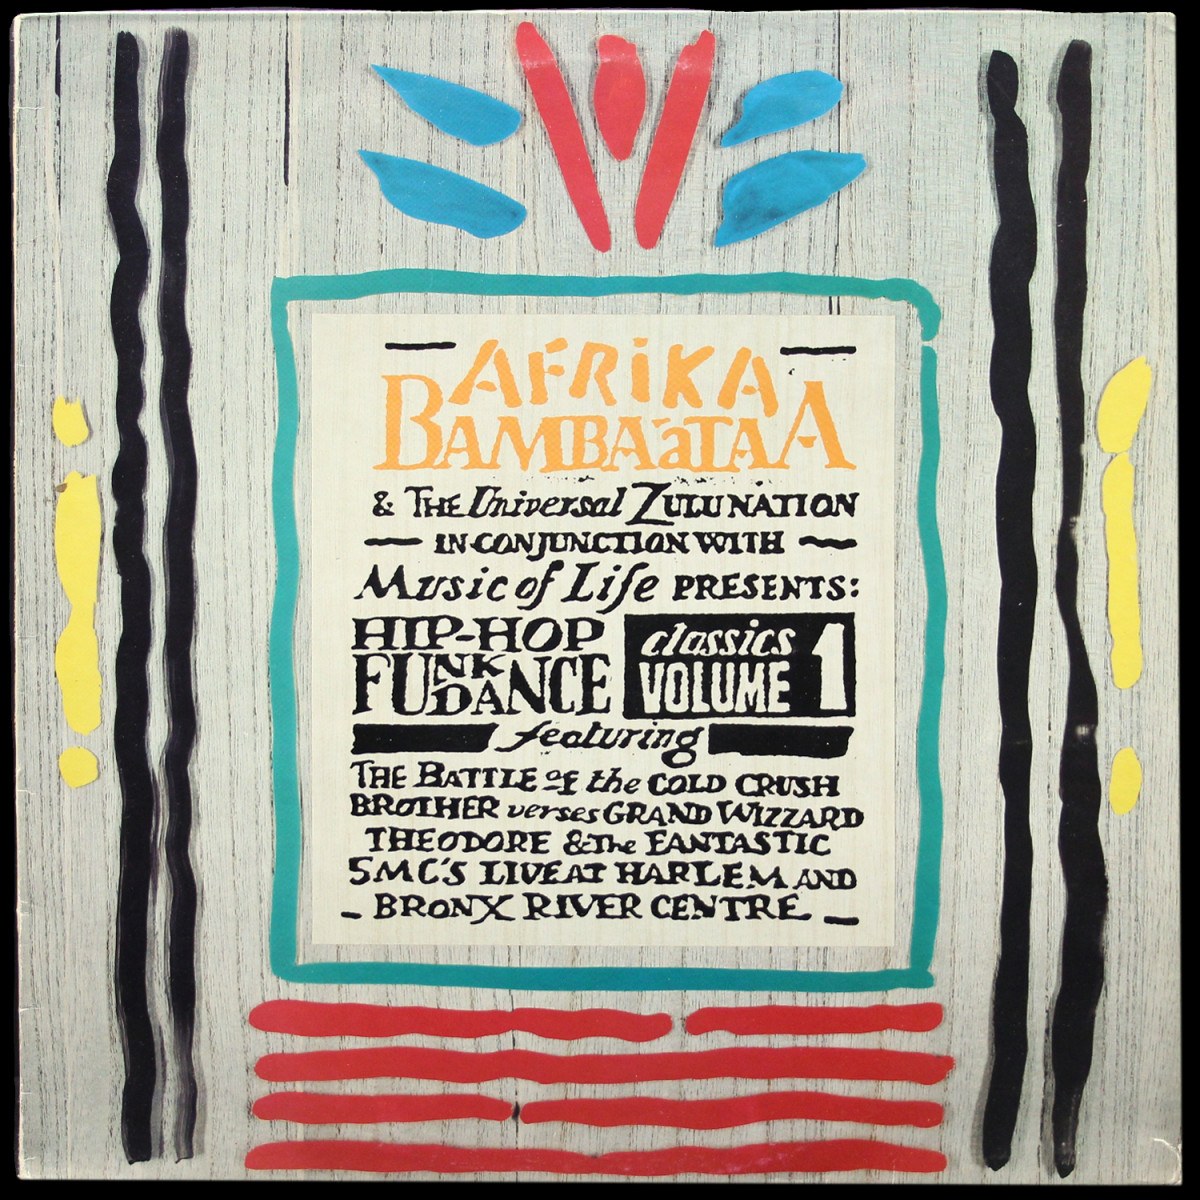 AFRiKA
BAMBAáTAA
& THE Universal ZULU NATION
IN CONJUNCTION WITH
Music of Life PRESENTS:
HIP-HOP
FUNK
DANCE
classics
VOLUME 1
featuring
THE BATTLE of the COLD CRUSH
BROTHER verses GRAND WIZZARD
THEODORE & The FANTASTIC
5 M C'S LIVE AT HARLEM AND
BRONX RIVER CENTRE